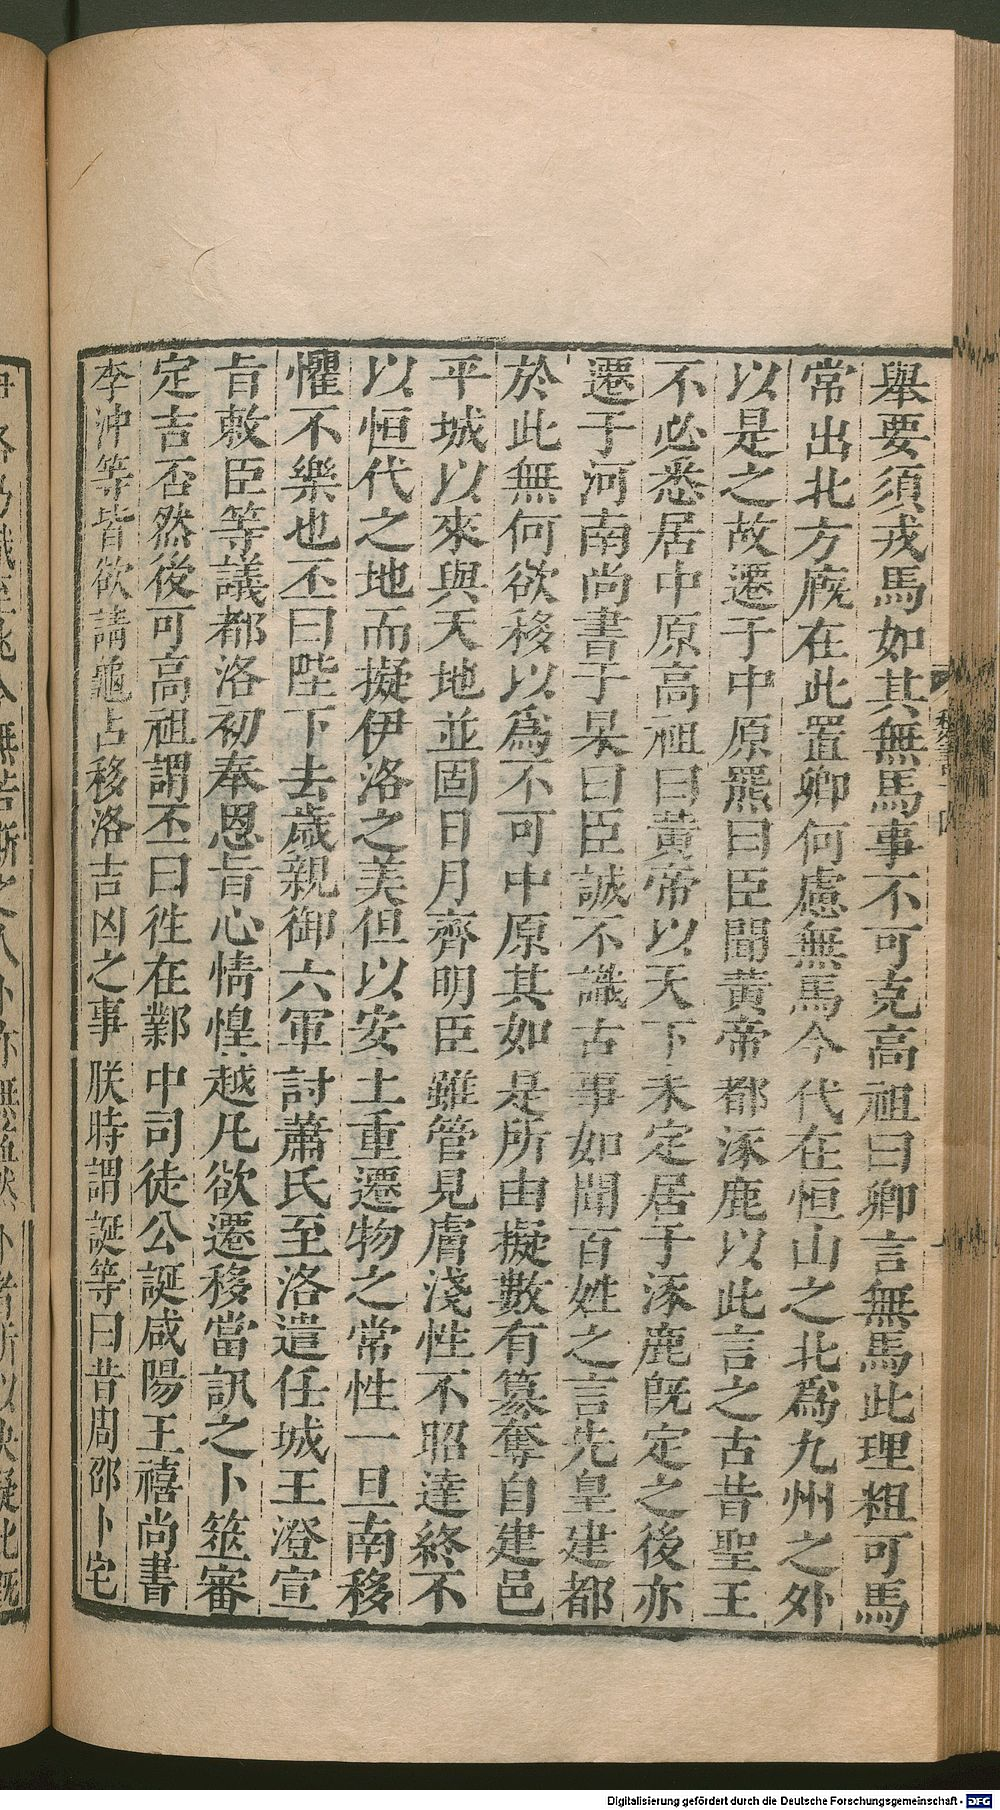 舉要須戎馬如其無馬事不可克高祖曰卿言無馬此理粗可馬
常出北方廐在此置卿何慮無馬今代在恒山之北爲九州之外
以是之故遷于中原羆曰臣聞黃帝都涿鹿以此言之古昔聖王
不必悉居中原高祖曰黃帝以天下未定居于涿鹿旣定之後亦
遷于河南尚書于杲曰臣誠不識古事如聞百姓之言先皇建都
於此無何欲移以爲不可中原其如是所由擬數有篡奪自建邑
平城以來與天地並固日月齊明臣雖管見膚淺性不昭達終不
以恒代之地而擬伊洛之美但以安土重遷物之常性一旦南移
懼不樂也丕曰陛下去歲親御六軍討蕭氏至洛遣任城王澄宣
旨敕臣等議都洛初奉恩旨心情惶越凡欲遷移當訊之卜筮審
定吉否然後可高祖謂丕曰徃在鄴中司徒公誕咸陽王禧尚書
李沖等皆欲請龜占移洛吉凶之事朕時謂誕等曰昔周邵卜宅
Digitalisierung gefördert durch die Deutsche Forschungsgemeinschaft - DFG